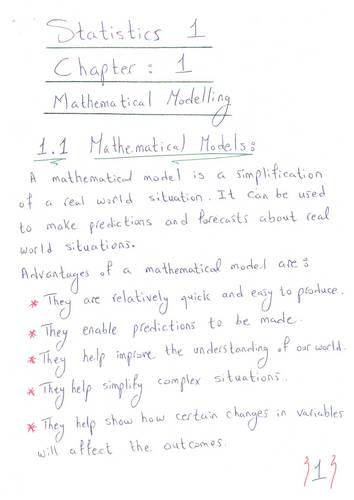 Statistics 1
Chapter : 1
Mathematical Modelling
1.1 Mathematical Models:
A mathematical model is a simplification
of a real world situation. It can be used
to make predictions and forecasts about real
world situations.
Advantages of a mathematical model are:
* They are relatively quick and easy to produce.
* They enable predictions to be made.
* They help improve the understanding of our world.
* They help simplify complex situations.
* They help show how certain changes in variables
will affect the outcomes.
1